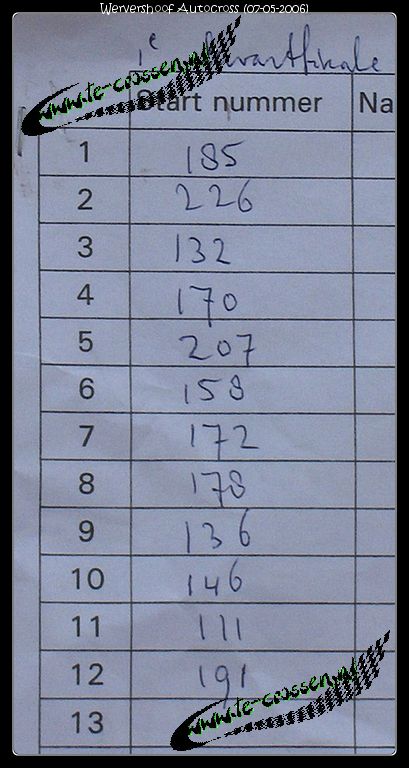 Wervershoof Autocross (07-05-2006)
1e kwartfinale
www.te-crossen.nl
Start nummer Na
1 185
2 226
3 132
4 170
5 207
6 158
7 172
8 178
9 136
10 146
11 111
12 191
13
www.te-crossen.nl